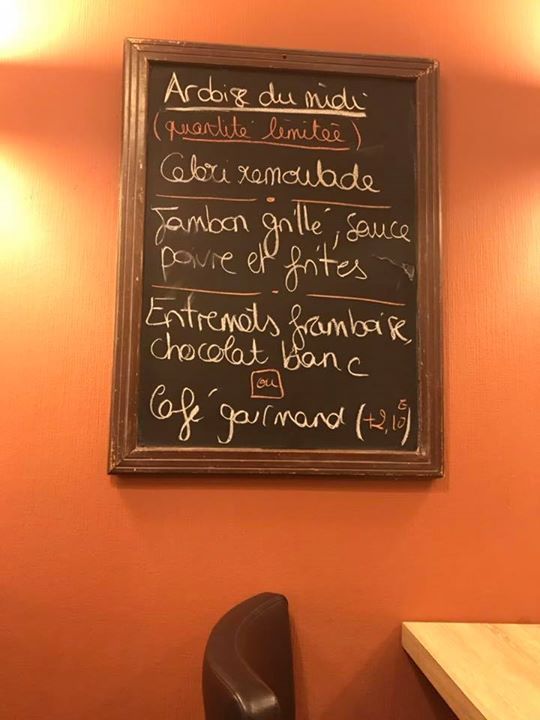 Ardoise du midi
(quantité limitée)
Celeri remoulade
Jambon grillé, sauce
poivre et frites
Entremets framboise,
chocolat blanc
ou
Café gourmand (+2,10€)